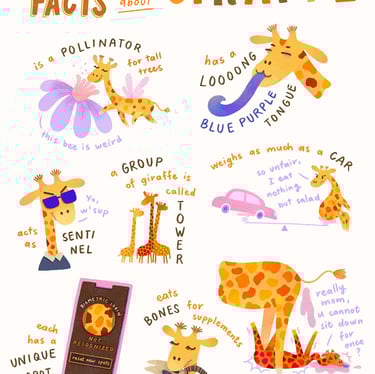 FACTS about
is a POLLINATOR
for tall
trees
this bee is weird
has a
LOOOONG
BLUE PURPLE
TONGUE
a GROUP
of giraffe is
called
TOWER
yo,
w'sup
acts
as
SENTI
NEL
weighs as much as a CAR
so unfair,
I eat
nothing
but salad
each
has a
UNIQUE
BIOMETRIC SCAN
NOT
RECOGNIZED
reset new spots
eats
BONES for
supplements
really
mom,
u cannot
sit down
for
once?